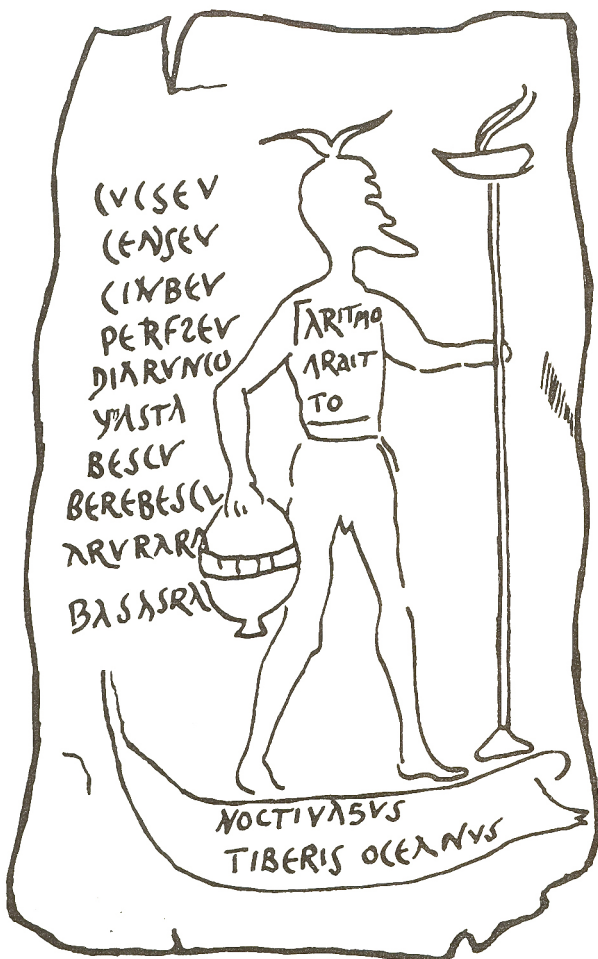 CVCSEV
CENSEV
CINBEV
PERFLEV
DIARVNCO
BESCV
BEREBESCV
ARVRARA
BASASRA
ARITMO
ARAIT
TO
NOCTIVAGVS
TIBERIS OCEANVS